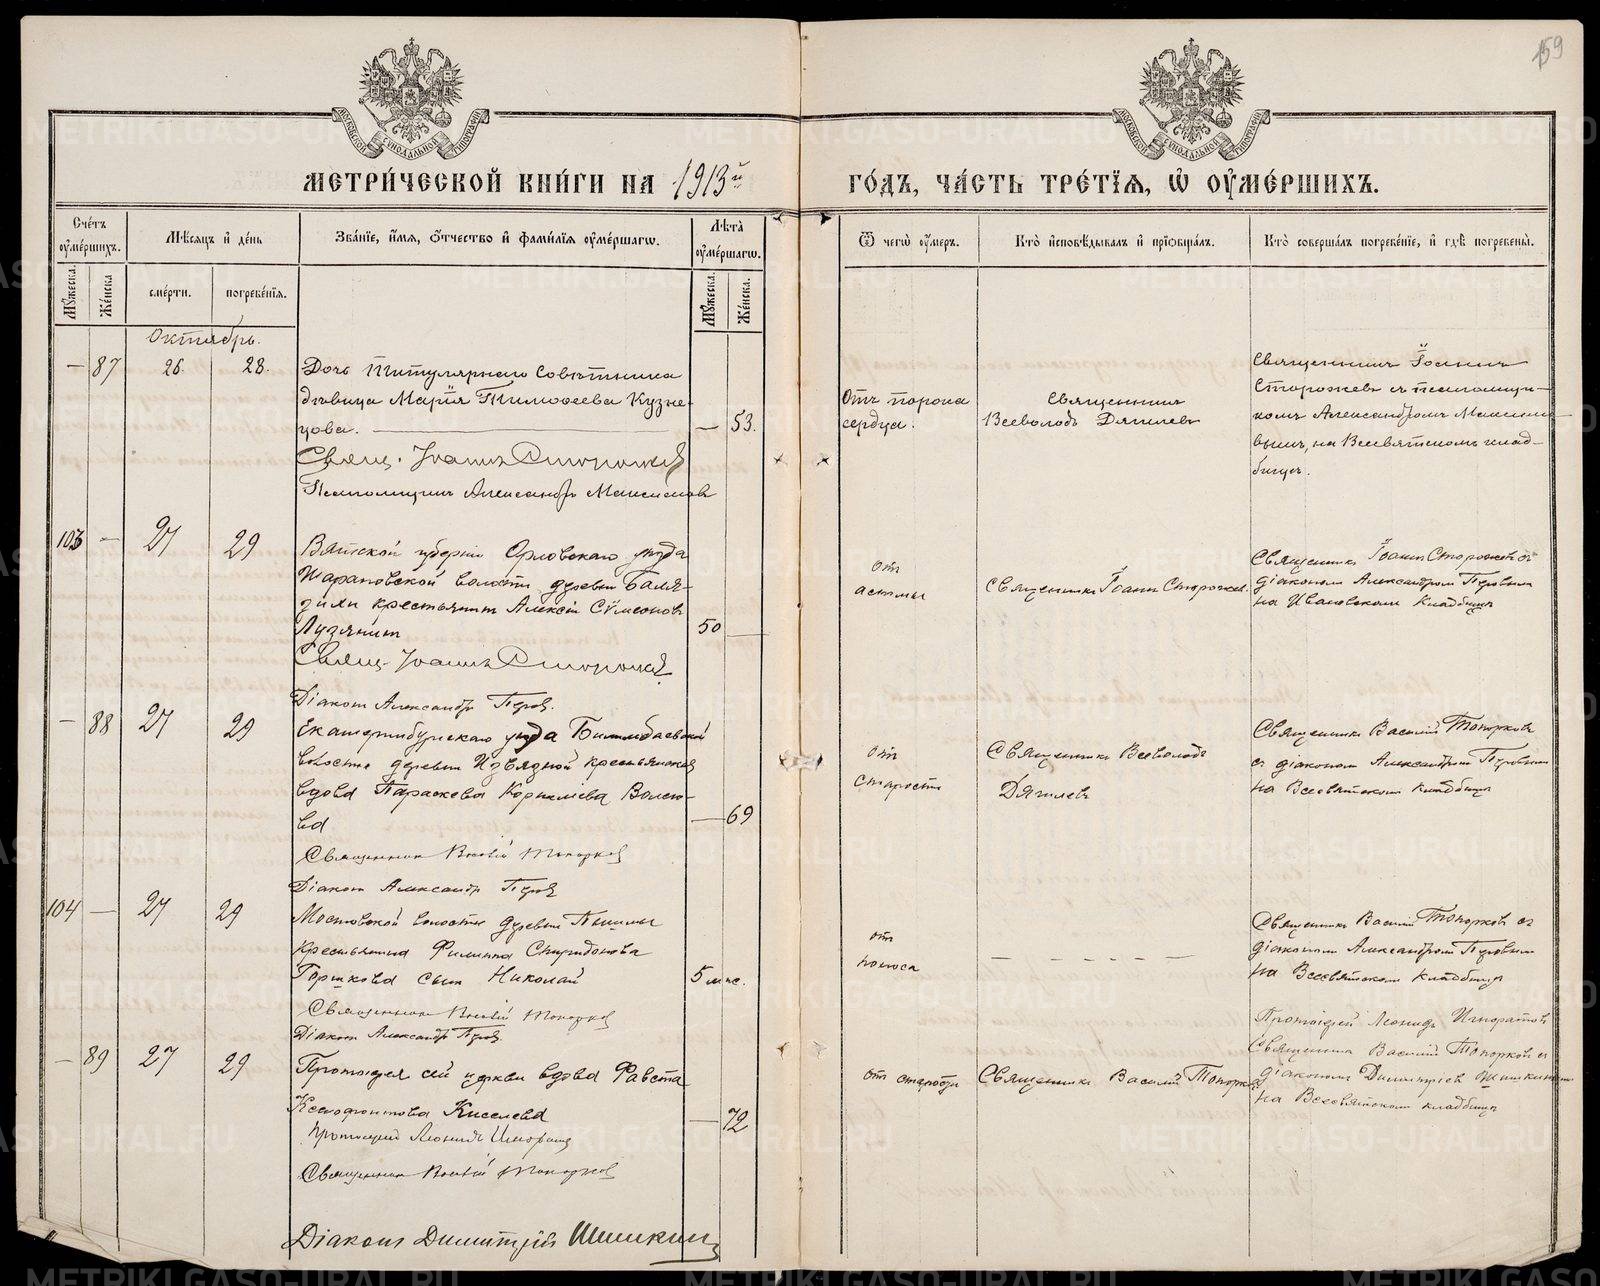 159
МОСКОВСКОЙ СѴНОДАЛЬНОЙ ТИПОГРАФІИ
МОСКОВСКОЙ СѴНОДАЛЬНОЙ ТИПОГРАФІИ
МЕТРИ́ЧЕСКОЙ КНИ́ГИ НА 1913й
ГО́ДЪ, ЧА́СТЬ ТРЕ́ТІѦ, Ѡ҆ ОУ҆МЕ́РШИХЪ.
Сче́тъ оу҆ме́ршихъ.
Мꙋ́жеска.
Же́нска
Мѣ́сѧцъ и҆ де́нь
сме́рти.
погребе́нїѧ.
Зва́нїе, и҆́мѧ, ѻ҆́тчество и҆ фами́лїѧ оу҆ме́ршагѡ.
Лѣ́та оу҆ме́ршагѡ.
Мꙋ́жеска.
Же́нска.
Ѿ чегѡ̀ оу҆́меръ.
Кто̀ и҆сповѣ́дывалъ и҆ прїѡбща́лъ.
Кто̀ соверша́лъ погребе́нїе, и҆ гдѣ̀ погребены̀.
Октябрь.
— 87 26. 28.
Дочь Титулярнаго Совѣтника
дѣвица Марія Тимофеева Кузне-
цова. — 53.
Свящ. Іоаннъ Сторожев
Псаломщикъ Александръ Максимовъ
Отъ порока
сердца.
Священникъ
Всеволодъ Дягилевъ
Священникъ Іоаннъ
Сторожевъ съ псаломщи-
комъ Александромъ Максимо-
вымъ, на Всевятскомъ клад-
бищѣ.
103 — 27 29
Вятской губерніи Орловскаго уѣзда
Шарановской волости деревни Баля-
крестьянинъ Алексій Сѵмеоновъ
Лузянинъ 50 —
Свящ. Іоаннъ Сторожев
Діаконъ Александръ Перов.
отъ
астмы
Священникъ Іоаннъ Сторожев.
Священникъ Іоаннъ Сторожевъ съ
діакономъ Александромъ Перовымъ
на Ивановскомъ кладбищѣ
— 88 27 29
Екатеринбургскаго уѣзда Билимбаевской
волости деревни Извѣздной крестьянская
вдова Параскева Корнилиева Волко-
ва — 69
Священник Василій Топорков
Діаконъ Александръ Перов
отъ
старости
Священникъ Всеволодъ
Дягилевъ
Священникъ Василій Топорковъ
съ діакономъ Александромъ Перовымъ
на Всесвятскомъ кладбищѣ
104 — 27 29
Мостовской волости деревни Пышмы
крестьянина Филиппа Спиридонова
Горшкова сынъ Николай 5 мѣс.
Священник Василій Топорков
Діаконъ Александръ Перов.
отъ
поноса
— — — — — — —
Священникъ Василій Топорковъ съ
діакономъ Александромъ Перовымъ
на Всесвятскомъ кладбищѣ
— 89 27 29
Протоіерея сей церкви вдова Фавста
Ксенофонтова Киселева — 72
Протоіерей Леонидъ Игноратов
Священник Василій Топорков
Діаконъ Димитрій Шишкинъ
отъ старости
Священникъ Василій Топорков
Протоіерей Леонидъ Игноратовъ
Священникъ Василій Топорков съ
діакономъ Димитріемъ Шишкинымъ
на Всесвятскомъ кладбищѣ
METRIKI.GASO-URAL.RU